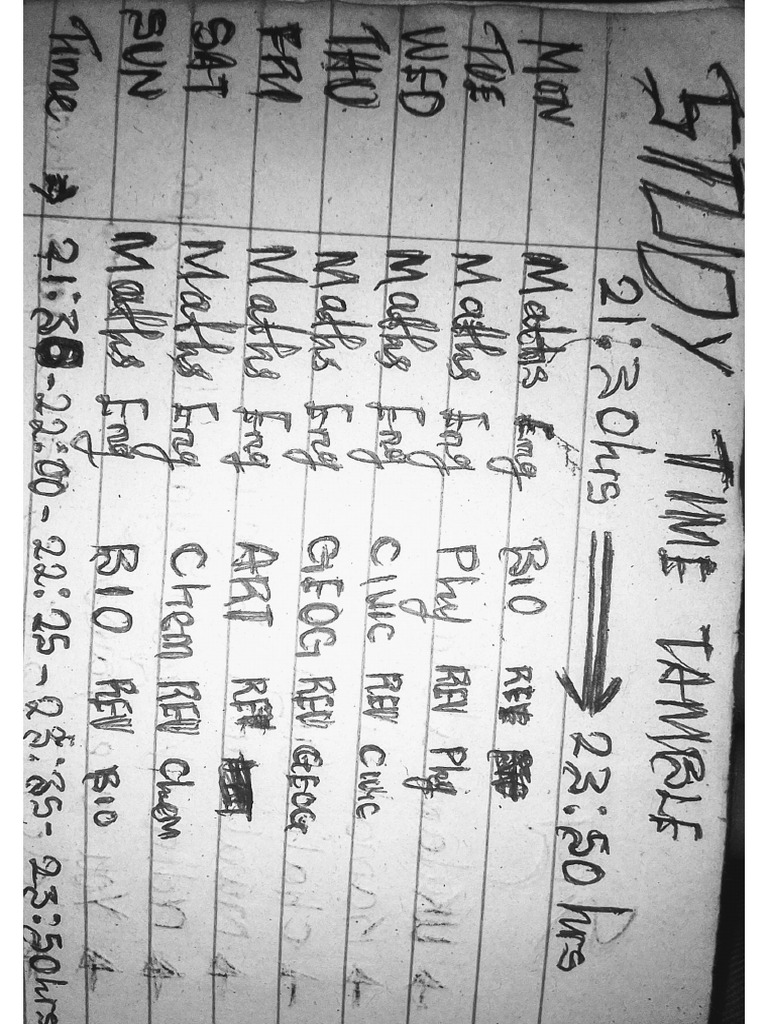 STUDY TIME TAMBLE
21:30hrs ⟹ 23:50hrs
MON Maths Eng BIO REV
TUE Maths Eng Phy REV Phy
WED Maths Eng CIVIC REV CIVIC
THU Maths Eng GEOG REV GEOG
FRI Maths Eng ART REV
SAT Maths Eng Chem REV Chem
SUN Maths Eng BIO REV BIO
Time → 21:30-22:00-22:25-23:35-23:50hrs